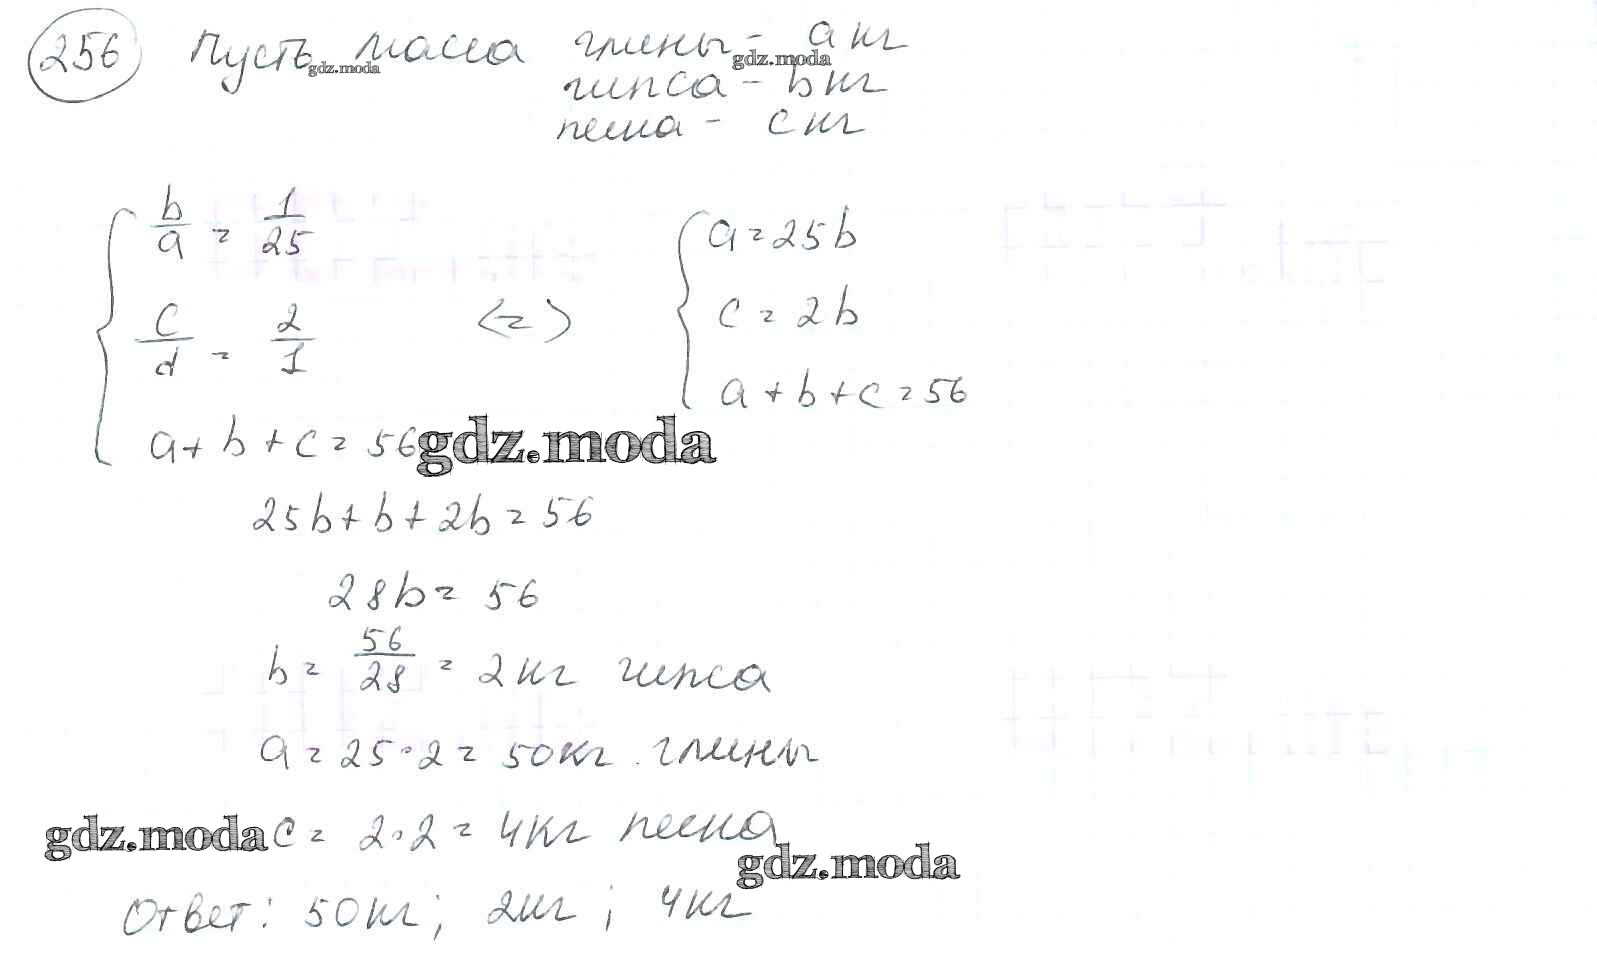 256 Пусть масса глины - a кг
gdz.moda gdz.moda
гипса - b кг
песка - c кг
b/a = 1/25
c/d = 2/1
a + b + c = 56
<=>
a = 25b
c = 2b
a + b + c = 56
gdz.moda
25b + b + 2b = 56
28b = 56
b = 56/28 = 2 кг гипса
a = 25 · 2 = 50 кг глины
gdz.moda c = 2 · 2 = 4 кг песка
gdz.moda
Ответ: 50 кг; 2 кг; 4 кг